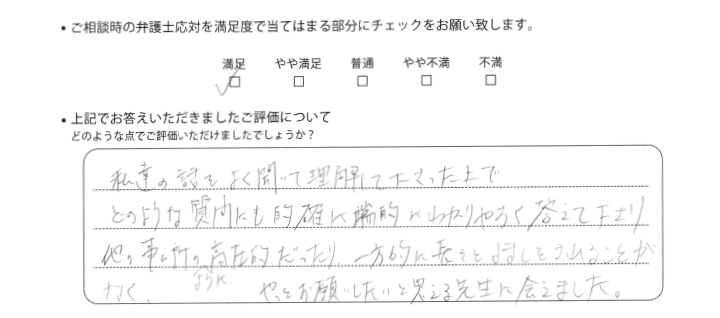 • ご相談時の弁護士応対を満足度で当てはまる部分にチェックをお願い致します。
満足 やや満足 普通 やや不満 不満
• 上記でお答えいただきましたご評価について
どのような点でご評価いただけましたでしょうか？
私達の話をよく聞いて理解して下さった上で
どのような質問にも的確に端的にわかりやすく答えて下さり
他の事ム所の高圧的だったり、一方的に長々と されることが
ように
なく、 やっとお願いしたいと思える先生に会えました。